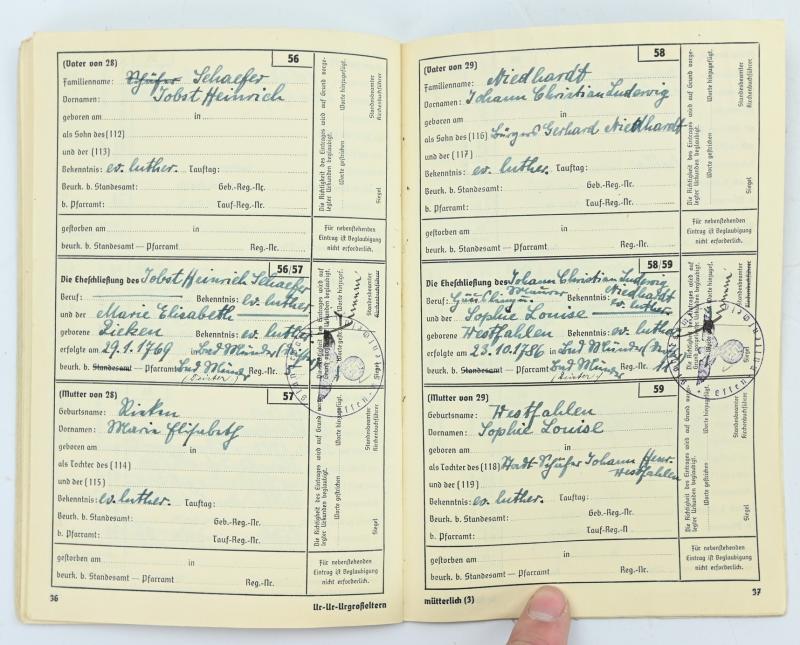 (Vater von 28) 56
Familienname: Schäfer Schaefer
Vornamen: Jobst Heinrich
geboren am in
als Sohn des (112)
und der (113)
Bekenntnis: ev. luther. Tauftag:
Beurk. b. Standesamt: Geb.-Reg.-Nr.
b. Pfarramt: Tauf-Reg.-Nr.
Die Richtigkeit des Eintrages wird auf Grund vorge-
legter Urkunden beglaubigt. Worte hinzugefügt.
Worte gestrichen
Standesbeamter
Kirchenbuchführer
Siegel
gestorben am in
beurk. b. Standesamt — Pfarramt Reg.-Nr.
Für nebenstehenden
Eintrag ist Beglaubigung
nicht erforderlich.
56/57
Die Eheschließung des Jobst Heinrich Schaefer
Beruf: Bekenntnis: ev. luther
und der Marie Elisabeth
geborene Zieken Bekenntnis: ev. luther
erfolgte am 29.1.1769 in Bad Münder
beurk. b. Standesamt — Pfarramt Bad Münder Reg.-Nr.
(Deister)
(Mutter von 28) 57
Geburtsname:
Vornamen: Marie Elisabeth
geboren am in
als Tochter des (114)
und der (115)
Bekenntnis: ev. luther. Tauftag:
Beurk. b. Standesamt: Geb.-Reg.-Nr.
b. Pfarramt: Tauf-Reg.-Nr.
Die Richtigkeit des Eintrages wird auf Grund vorge-
legter Urkunden beglaubigt. Worte hinzugefügt.
Worte gestrichen
Standesbeamter
Kirchenbuchführer
Siegel
gestorben am in
beurk. b. Standesamt — Pfarramt Reg.-Nr.
Für nebenstehenden
Eintrag ist Beglaubigung
nicht erforderlich.
36 Ur-Ur-Urgroßeltern
(Vater von 29) 58
Familienname: Niedhardt
Vornamen: Johann Christian Ludewig
geboren am in
als Sohn des (116) Bürgers Gerhard Niedhardt
und der (117)
Bekenntnis: ev. luther. Tauftag:
Beurk. b. Standesamt: Geb.-Reg.-Nr.
b. Pfarramt: Tauf-Reg.-Nr.
Die Richtigkeit des Eintrages wird auf Grund vorge-
legter Urkunden beglaubigt. Worte hinzugefügt.
Worte gestrichen
Standesbeamter
Kirchenbuchführer
Siegel
gestorben am in
beurk. b. Standesamt — Pfarramt Reg.-Nr.
Für nebenstehenden
Eintrag ist Beglaubigung
nicht erforderlich.
58/59
Die Eheschließung des Johann Christian Ludwig
Niedhardt
Beruf: Maurer Bekenntnis: ev. luther
und der Sophie Louise
geborene Westfahlen Bekenntnis: ev. luther
erfolgte am 23.10.1786 in Bad Münder
beurk. b. Standesamt — Pfarramt Bad Münder Reg.-Nr. 11
(Deister)
(Mutter von 29) 59
Geburtsname: Westfahlen
Vornamen: Sophie Louise
geboren am in
als Tochter des (118) Stadt-Schäfer Johann Heinr.
Westfahlen
und der (119)
Bekenntnis: ev. luther. Tauftag:
Beurk. b. Standesamt: Geb.-Reg.-Nr.
b. Pfarramt: Tauf-Reg.-Nr.
Die Richtigkeit des Eintrages wird auf Grund vorge-
legter Urkunden beglaubigt. Worte hinzugefügt.
Worte gestrichen
Standesbeamter
Kirchenbuchführer
Siegel
gestorben am in
beurk. b. Standesamt — Pfarramt Reg.-Nr.
Für nebenstehenden
Eintrag ist Beglaubigung
nicht erforderlich.
mütterlich (3) 37